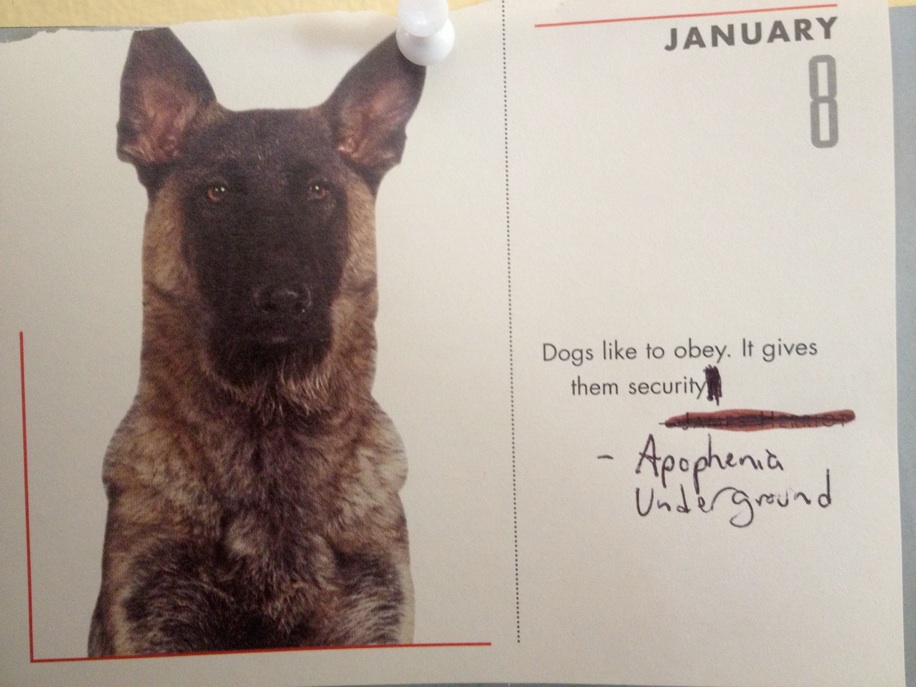 JANUARY
8
Dogs like to obey. It gives
them security
- JAMES HERRIOT
- Apophenia
Underground